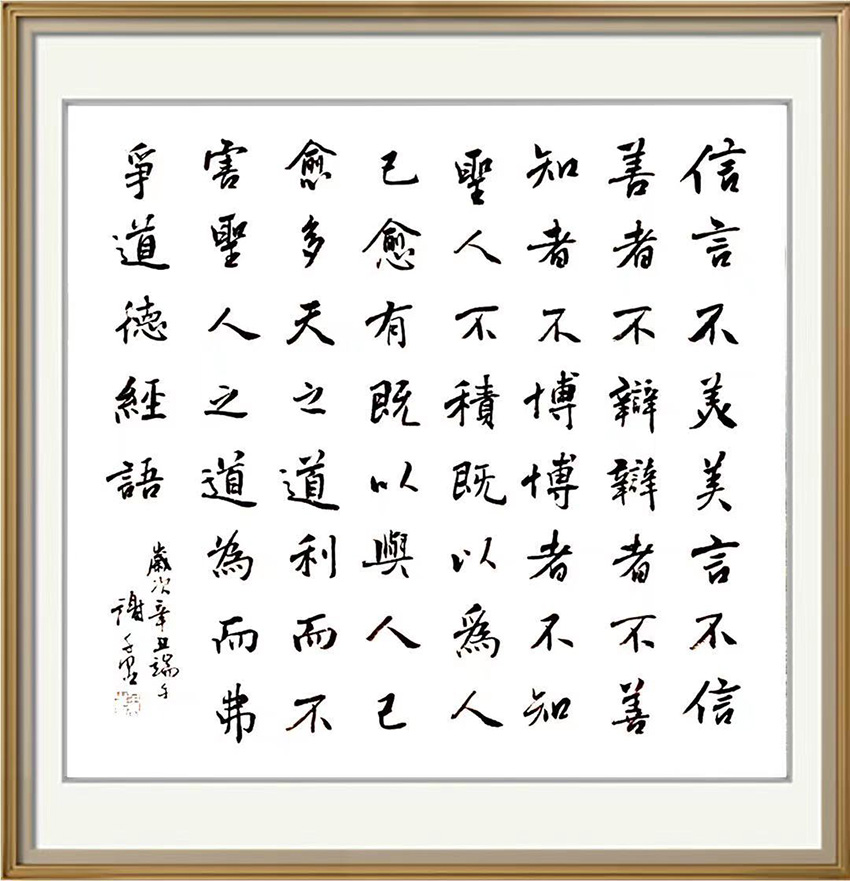 信言不美美言不信
善者不辯辯者不善
知者不博博者不知
聖人不積既以為人
己愈有既以與人己
愈多天之道利而不
害聖人之道為而弗
爭道德經語
歲次辛丑端午
謝